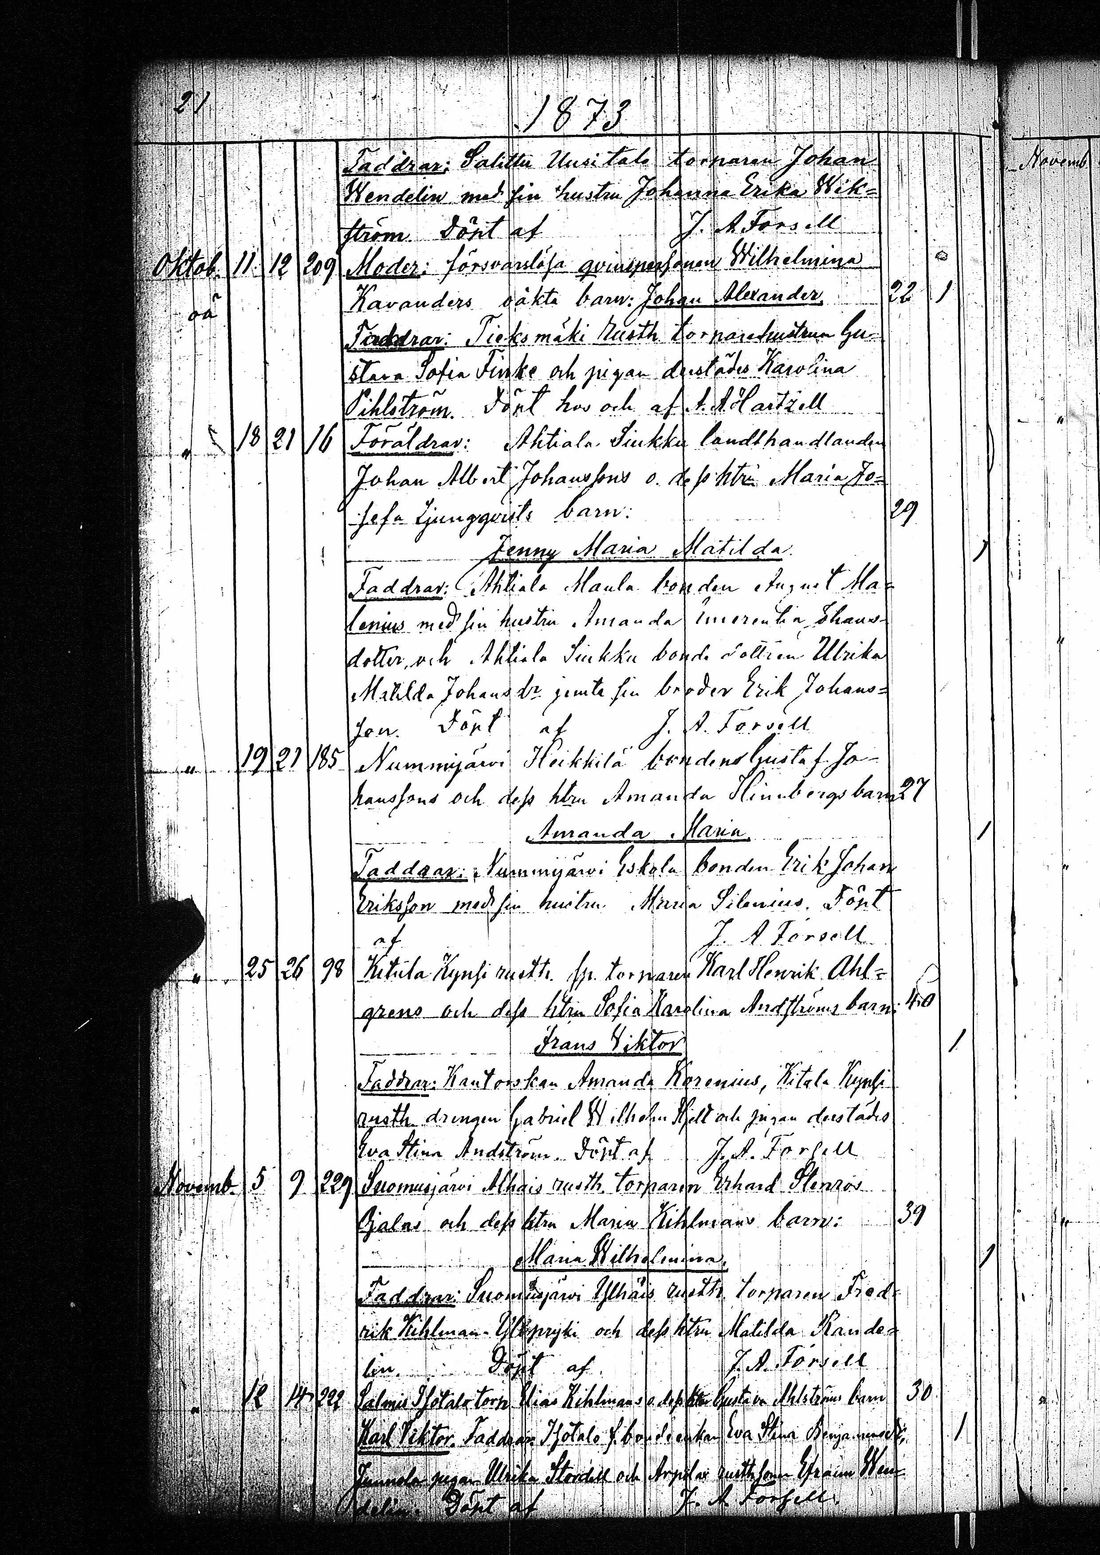 21
1873
Faddrar: Salittu Uusitalo torparen Johan
Novemb
Wendelin med sin hustru Johanna Erika Wik=
ström. Döpt af J. A. Forsell
Oktob. 11 12 209 Moder: försvarslösa qvinspersonen Wilhelmina
oä Kavanders oäkta barn: Johan Alexander 22 1
Faddrar: Tieksmäki rusth torparehustrun Gu=
stava Sofia Finke och pigan derstädes Karolina
Pihlström. Döpt hos och af A. A. Hartzell
" 18 21 16 Föräldrar: Ahtiala Sinkku landthandlanden
Johan Albert Johanssons o. dess htru Maria Jo=
sefa Ljungqvists barn: 29
Jenny Maria Matilda. 1
Faddrar: Ahtiala Maula bonden August Ma=
lenius med sin hustru Amanda Emerentia Johans=
dotter, och Ahtiala Sinkku bonde dottren Ulrika
Matilda Johans dr jemte sin broder Erik Johans=
son. Döpt af J. A. Forsell
" 19 21 185 Nummijärvi Heikkilä bondens Gustaf Jo-
hanssons och dess htru Amanda Himbergs barn 27
Amanda Maria. 1
Faddrar: Nummijärvi Eskola bonden Erik Johan
Eriksson med sin hustru Maria Silenius. Döpt
af J. A Forsell
" 25 26 98 Kitula Kynsi rusth. sp. torparen Karl Henrik Ahl=
grens och dess htru Sofia Karolina Andströms barn: 40
Frans Viktor 1
Faddrar: Kantorskan Amanda Korenius, Kitula Kynsi
rusth. drengen Gabriel Wilhelm Hjelt och pigan derstädes
Eva Stina Andström. Döpt af J. A. Forsell
Novemb. 5 9 229 Suomusjärvi Alhais rusth. torparen Erhard Stenros
Ojalas och dess htru Maria Kihlmans barn: 39
Maria Wilhelmina. 1
Faddrar: Suomusjärvi Ylhäis rusth. torparen Fred=
rik Kihlman och dess htru Matilda Rande=
lin. Döpt af J. A. Forsell
" 12 14 222 Salmis Isotalo torp Elias Kihlmans o dess htru Gustava Ahlströms barn 30
Karl Viktor. Faddrar Isotalo f. bondeenkan Eva Stina Benjaminsdr, 1
Junnola pigan Ulrika Stordell och rusth sonen Efraim Wen=
delin. Döpt af J. A Forsell.